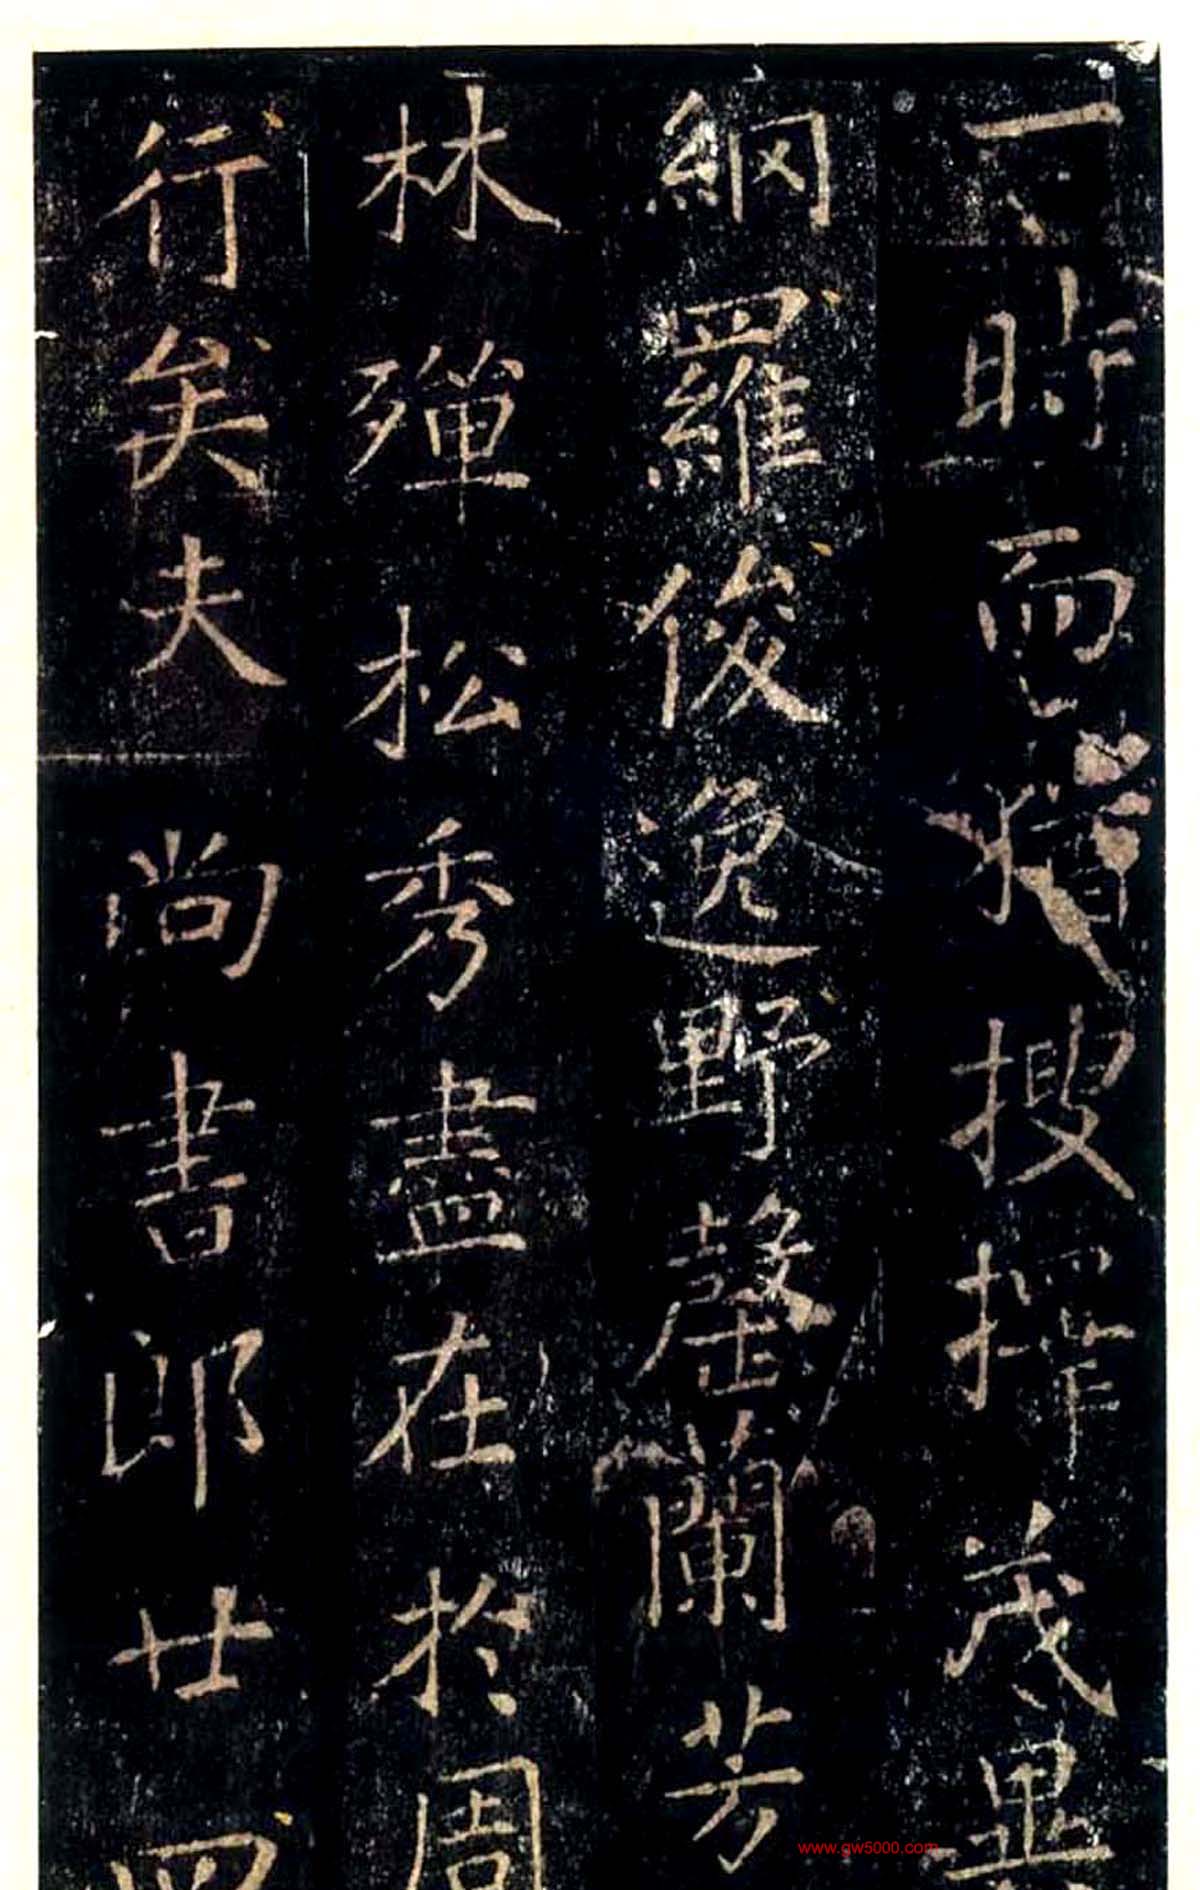 時而猶搜擢茂異
網羅俊逸野罄蘭芳
林殫松秀盡在於周
行矣夫尚書郎廿四
www.gw5000.com